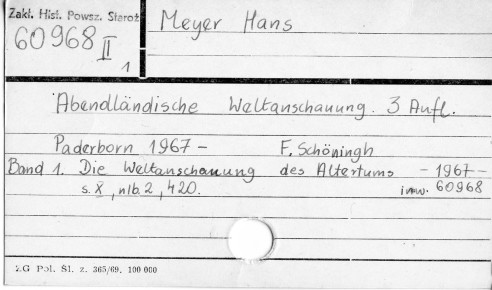 Zakł. Hist. Powsz. Staroż
60968 II
1
Meyer Hans
Abendländische Weltanschauung. 3 Aufl.
Paderborn 1967 - F. Schöningh
Band 1. Die Weltanschauung des Altertums - 1967 -
s. X, nlb. 2, 420. inw. 60968
ZG Pol. Śl. z. 365/69. 100 000